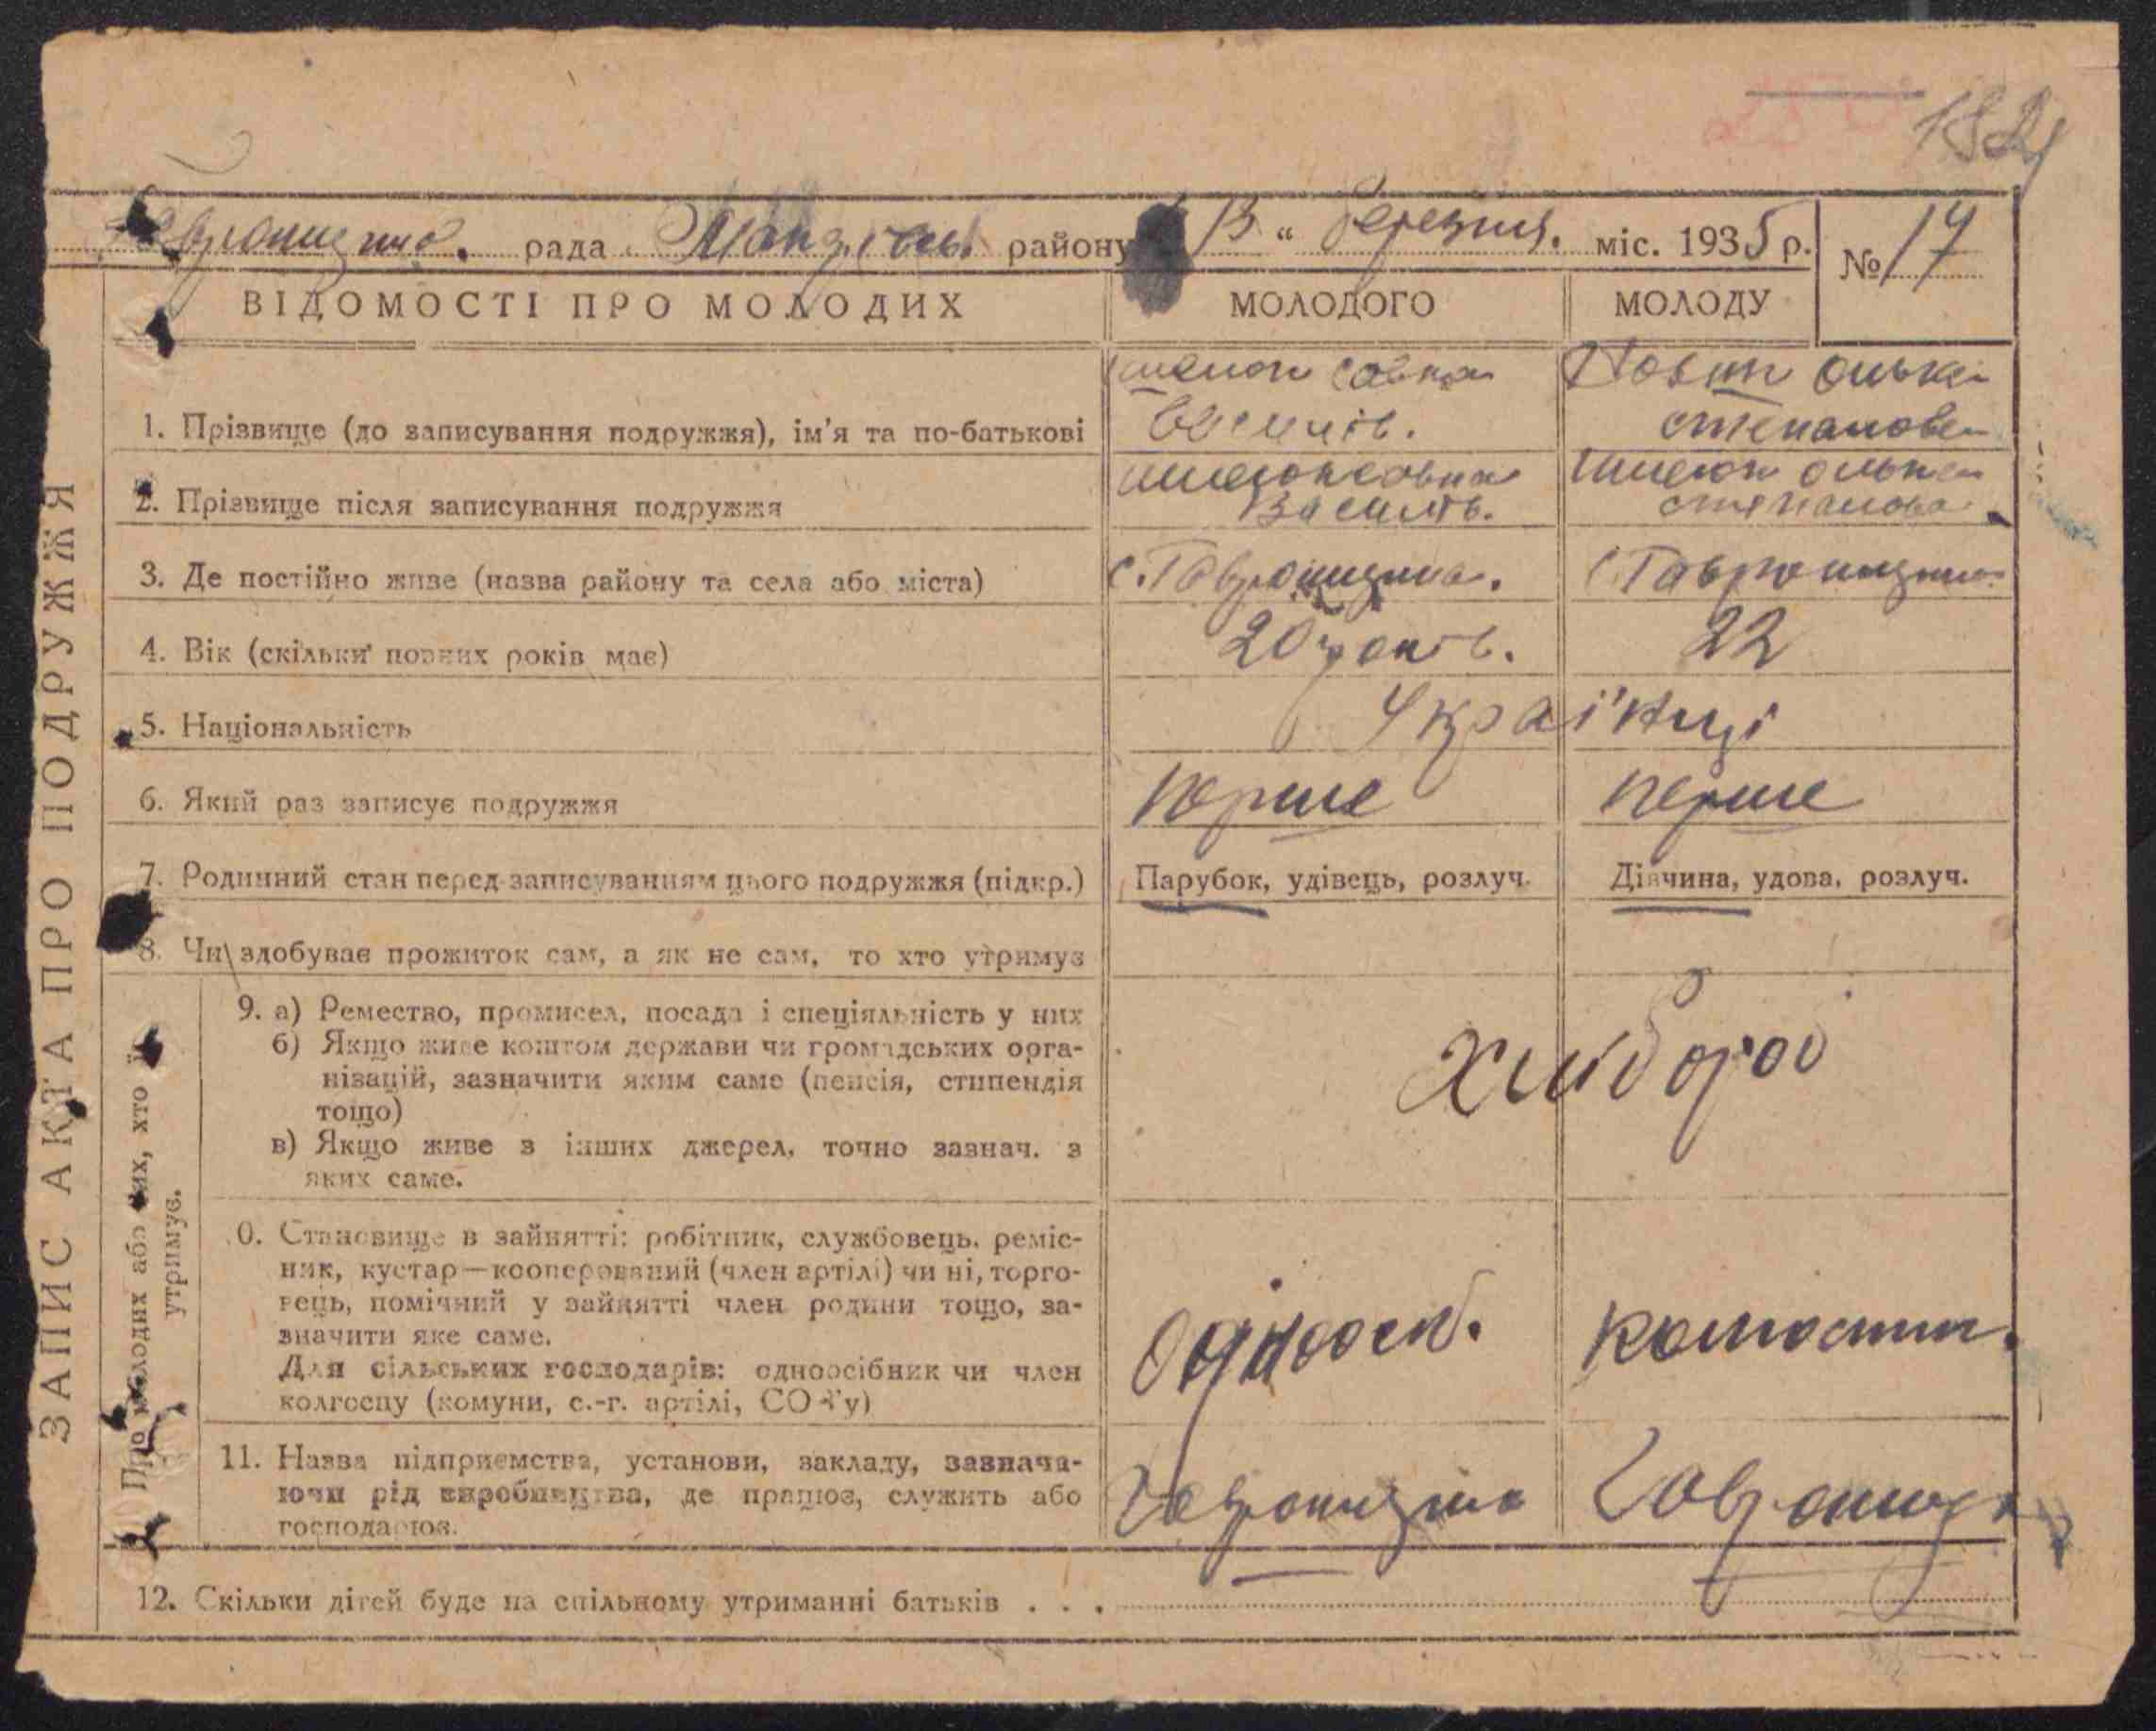 рада району 13 " березня. міс. 1935 р.
№ 17
ВІДОМОСТІ ПРО МОЛОДИХ МОЛОДОГО МОЛОДУ
ЗАПИС АКТА ПРО ПОДРУЖЖЯ
1. Прізвище (до записування подружжя), ім'я та по-батькові
Савка
Василів.
Олька
Степанова
2. Прізвище після записування подружжя
Савка
Василів.
Олька
Степанова
3. Де постійно живе (назва району та села або міста) с. Гавронщина. с. Гавронщина
4. Вік (скільки повних років має) 20 років. 22
5. Національність Українці
6. Який раз записує подружжя перше перше
7. Родинний стан перед записуванням цього подружжя (підкр.) Парубок, удівець, розлуч. Дівчина, удова, розлуч.
8. Чи здобуває прожиток сам, а як не сам, то хто утримує
Про молодих або тих, хто їх
утримує.
9. а) Ремество, промисел, посада і спеціяльність у них
б) Якщо живе коштом держави чи громадських орга-
нізацій, зазначити яким саме (пенсія, стипендія
тощо)
в) Якщо живе з інших джерел, точно зазнач. з
яких саме.
хлібороб
0. Становище в зайнятті: робітник, службовець, реміс-
ник, кустар—кооперований (член артілі) чи ні, торго-
вець, помічний у зайнятті член родини тощо, за-
значити яке саме.
Для сільських господарів: одноосібник чи член
колгоспу (комуни, с.-г. артілі, СОЗ'у)
одноосіб.
11. Назва підприємства, установи, закладу, зазнача-
ючи рід виробництва, де працює, служить або
господарює.
Гавронщина Гавронщ
12. Скільки дітей буде на спільному утриманні батьків . . .